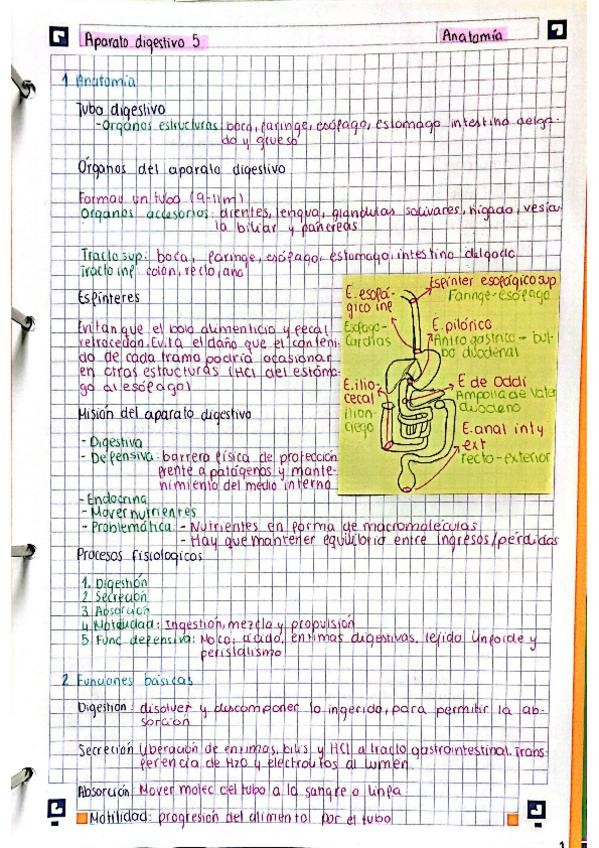 Aparato digestivo 5
Anatomía
1 Anatomía
Tubo digestivo
- Organos estructuras: boca, faringe, esófago, estomago intestino delga-
do y grueso
Órganos del aparato digestivo
Forman un tubo (9-11m)
Organos accesorios: dientes, lengua, glandulas salivares, higado, vesicu-
la biliar y pancreas
Tracto sup: boca, faringe, esófago, estomago, intestino delgado
Tracto inf: colon, recto, ano
Esfínteres
Evitan que el bolo alimenticio y fecal
retrocedan. Evita el daño que el conteni-
do de cada tramo podria ocasionar
en otras estructuras (HCl del estoma-
go al esófago)
E. esofá-
gico inf
Esofago-
cardias
Esfinter esofágico sup
Faringe-esófago
E. pilórico
Antro gastrico - bul-
bo duodenal
E. ilio-
cecal
ilion-
ciego
E de Oddi
Ampolla de Vater
duodeno
E. anal int y
ext
recto-exterior
Misión del aparato digestivo
- Digestiva
- Defensiva: barrera física de protección
frente a patógenos y mante-
nimiento del medio interno
- Endocrina
- Mover nutrientes
- Problemática: - Nutrientes en forma de macromoléculas
- Hay que mantener equilibrio entre ingresos/pérdidas
Procesos fisiologicos
1. Digestión
2. Secreción
3 Absorción
4 Motilidad: Ingestion, mezcla y propulsión
5 Func defensiva: Moco, ácido, enzimas digestivas, tejido linfoide y
peristalismo
2 Funciones básicas
Digestión: disolver y descomponer lo ingerido, para permitir la ab-
sorción
Secreción liberación de enzimas, bilis y HCl a tracto gastrointestinal. Trans-
ferencia de H2O y electrolitos al lumen.
Absorción: Mover molec del tubo a la sangre o linfa
Motilidad: progresión del alimental por el tubo
1